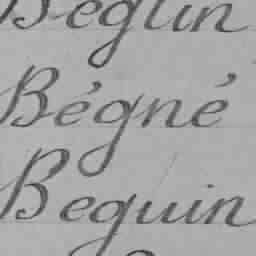 Béglin
Bégné
Beguin